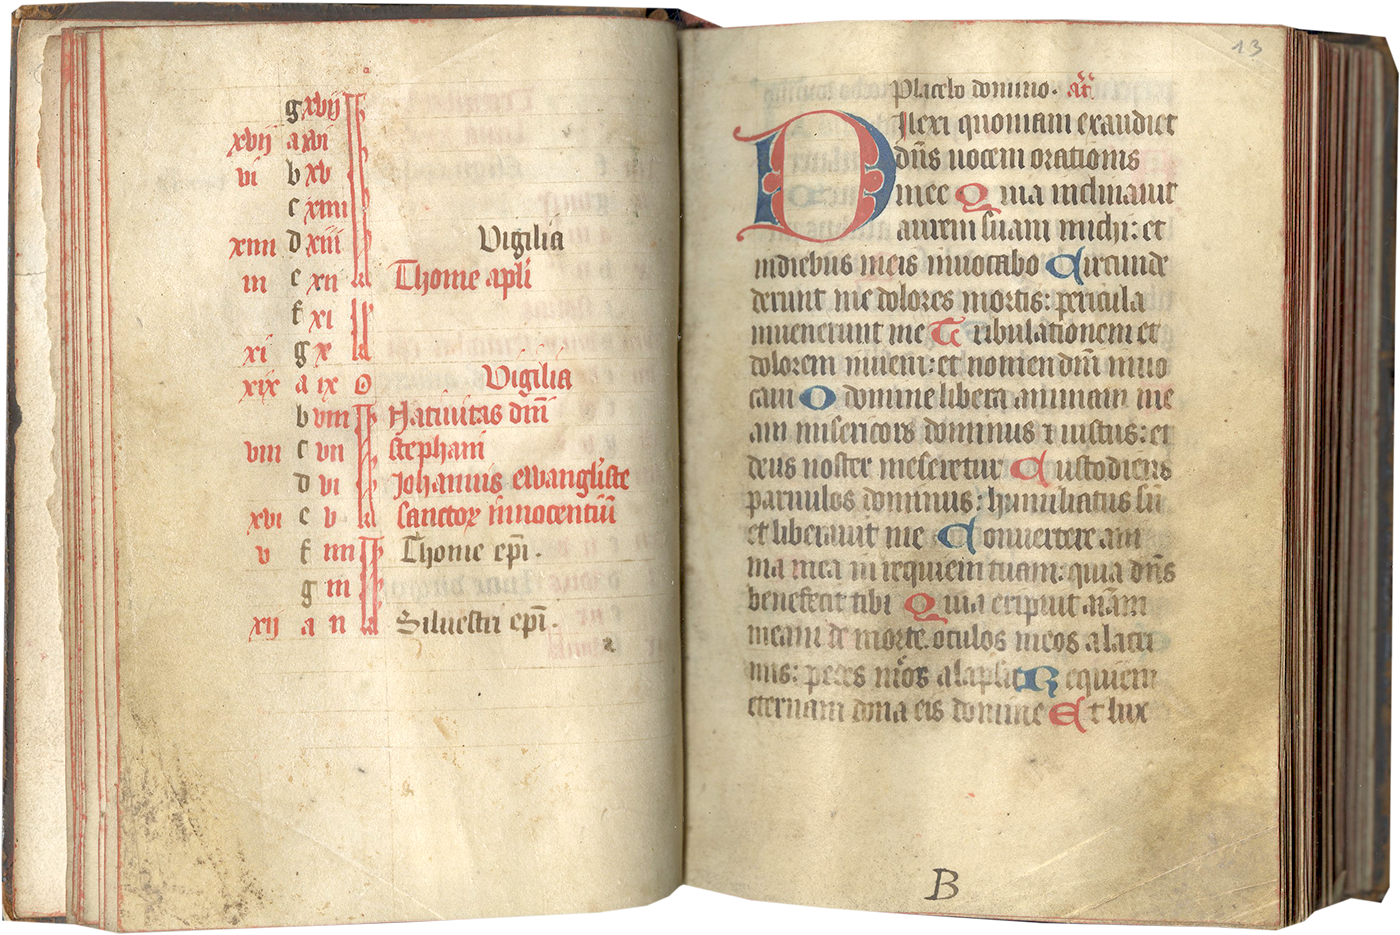 g xvij kl
xvij a xvi
vi b xv
c xiiii
xiiii d xiii Vigilia
iii e xii Thome apl̄i
f xi
xi g x
xix a ix Vigilia
b viii Natiuitas dn̄i
viii c vii stephani
d vi Johannis ewangliste
xvi e v sanctoꝝ innocentiū
v f iiii Thome ep̄i.
g iii
xij a ii Siluestri ep̄i.
13
Placebo domino. an̄
DIlexi quoniam exaudiet
dn̄s uocem orationis
mee Quia inclinauit
aurem suam michi: et
indiebus meis inuocabo Circumde
derunt me dolores mortis: pericula
inuenerunt me Tribulationem et
dolorem inueni: et nomen dn̄i inuo
caui O domine libera animam me
am misericors dominus ⁊ iustus: et
deus noster miseretur Custodiens
paruulos dominus: humiliatus sū
et liberauit me Conuertere ani
ma mea in requiem tuam: quia dn̄s
benefecit tibi Quia eripuit aīam
meam de morte. oculos meos a lacri
mis: pedes meos a lapsu Requiem
eternam dona eis domine Et lux
B